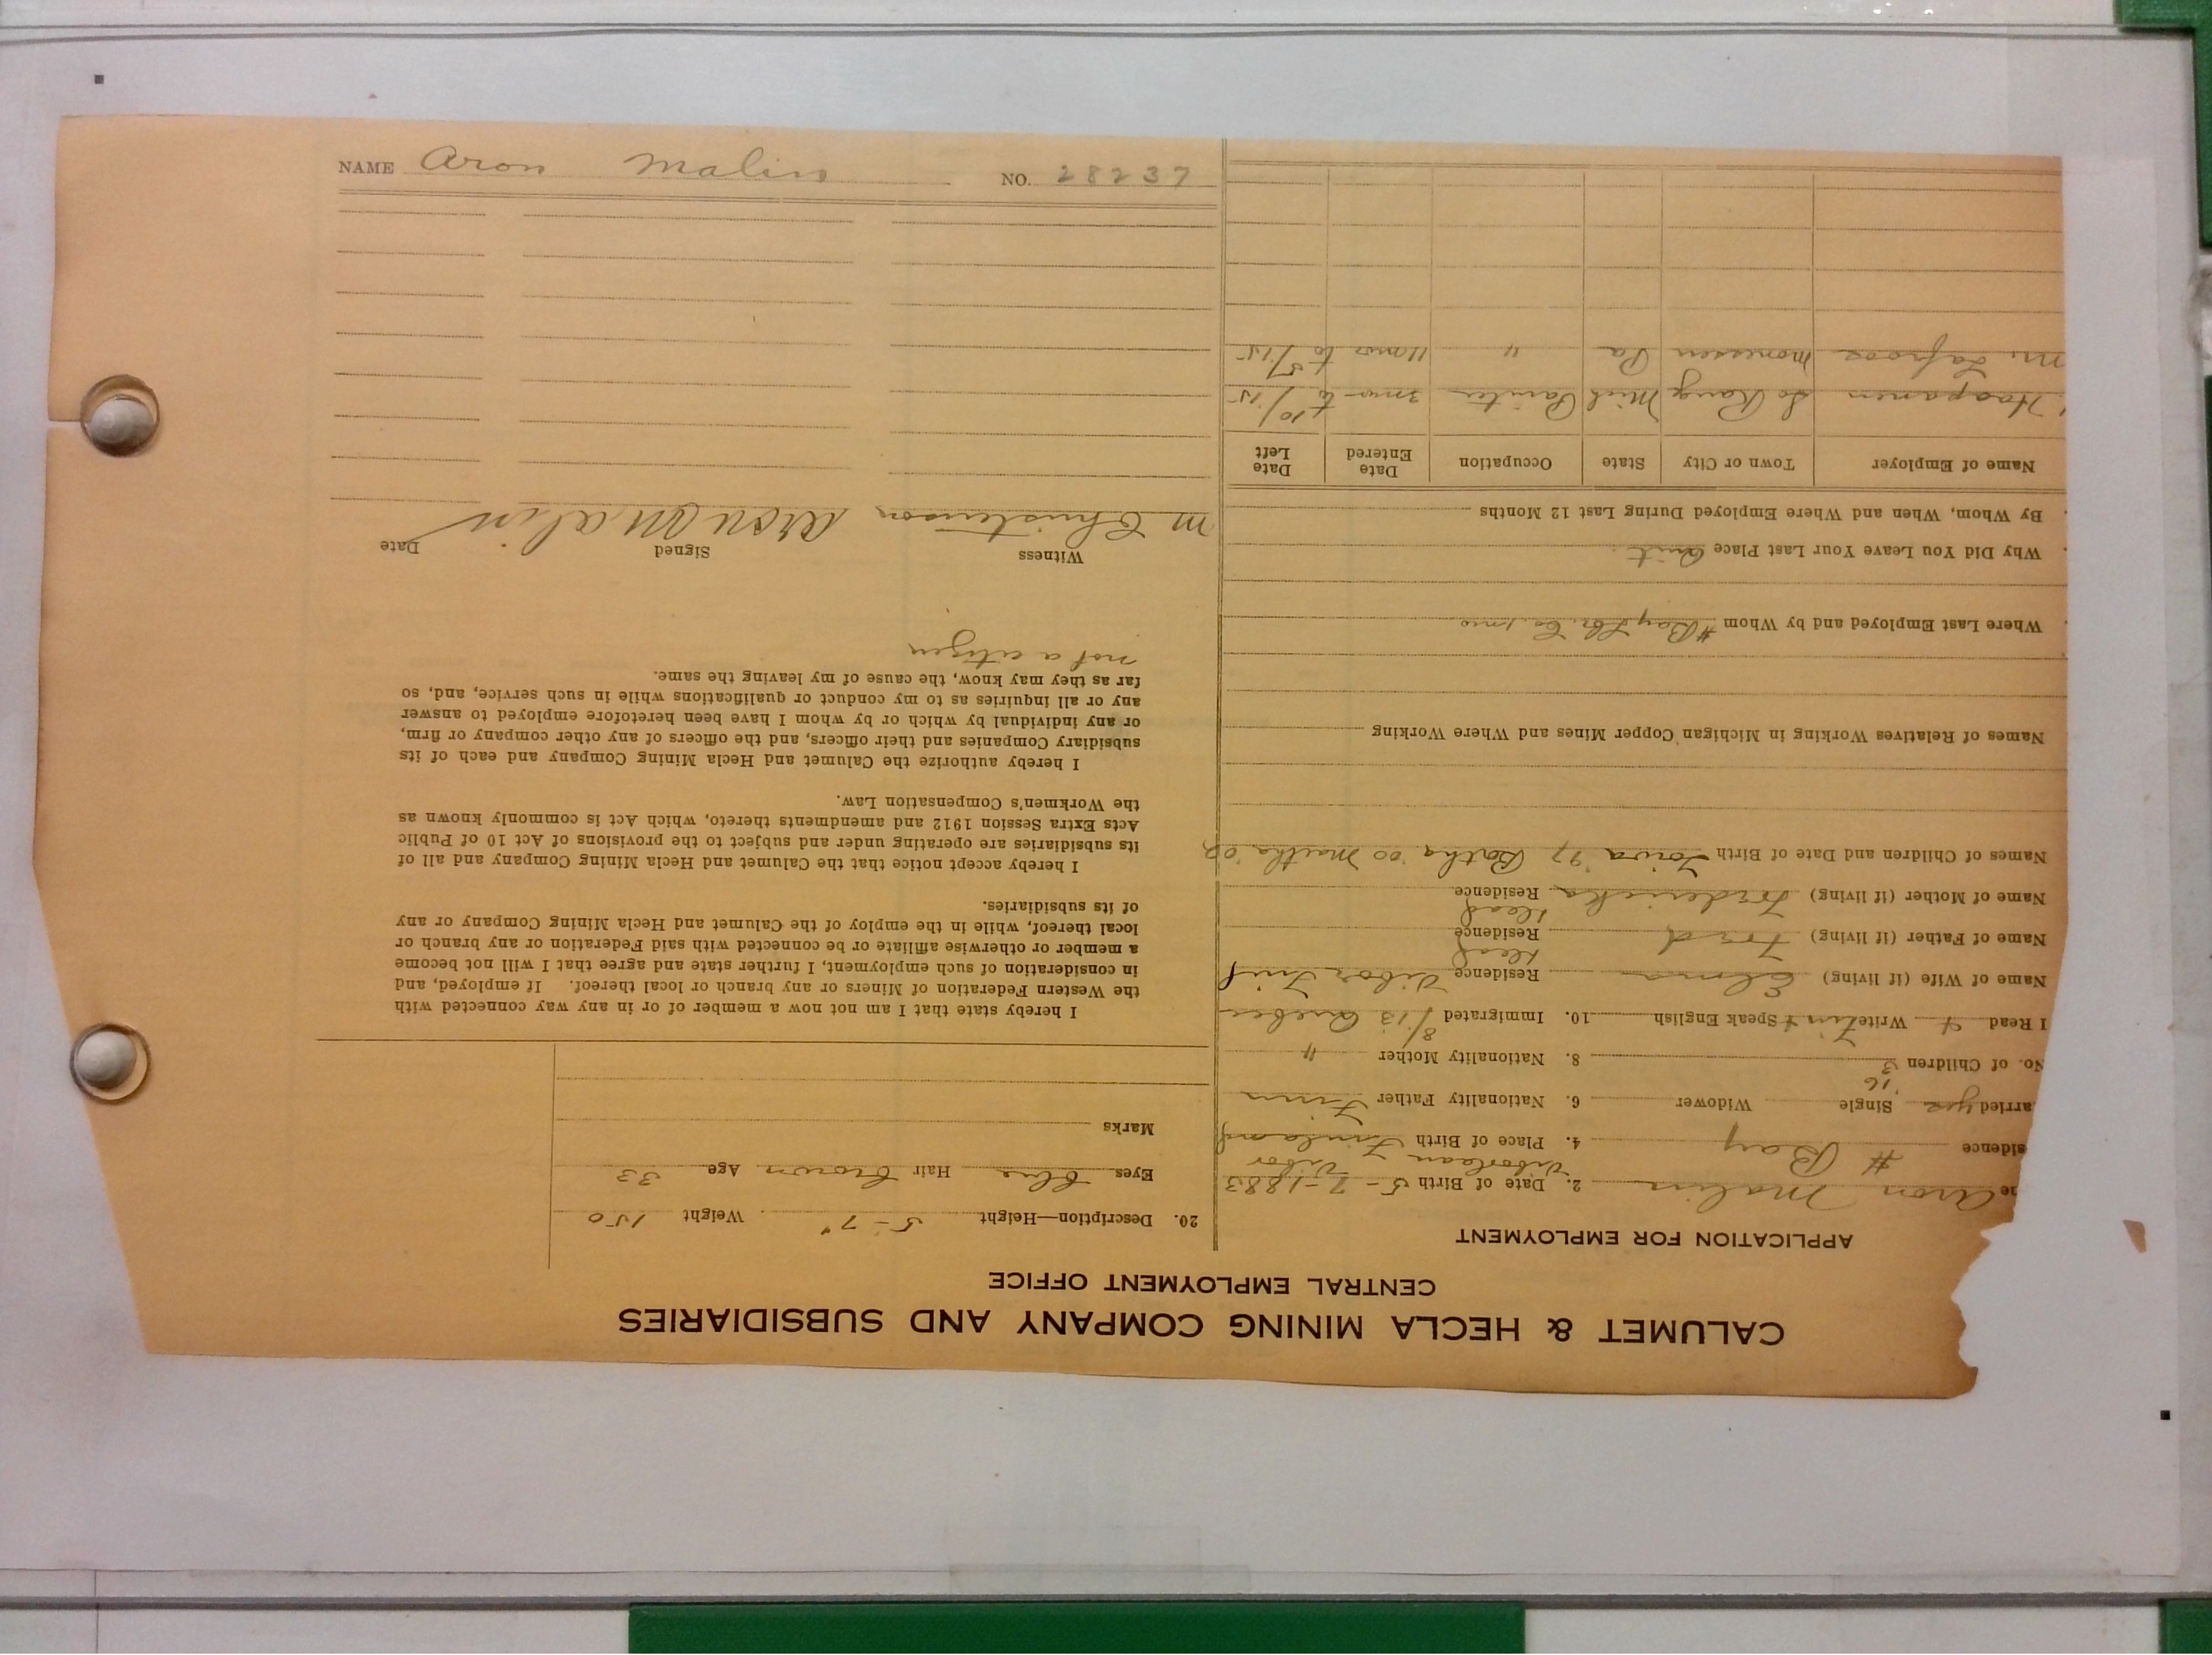 CALUMET & HECLA MINING COMPANY AND SUBSIDIARIES
CENTRAL EMPLOYMENT OFFICE
APPLICATION FOR EMPLOYMENT
me Aron Malin 2. Date of Birth 5-7-1883
sidence # Bay 4. Place of Birth Finland
arried yes 16 Single Widower 6. Nationality Father Finn
No. of Children 3 8. Nationality Mother "
I Read Write Finn Speak English 10. Immigrated 8/13 Quebec
Name of Wife (if living) Elma Residence
Name of Father (if living) Residence dead
Name of Mother (if living) Residence dead
Names of Children and Date of Birth '97 '00 Martha '02
Names of Relatives Working in Michigan Copper Mines and Where Working
Where Last Employed and by Whom # Bay Lbr. Co. 1 mo
Why Did You Leave Your Last Place Quit
By Whom, When and Where Employed During Last 12 Months
Name of Employer Town or City State Occupation Date Entered Date Left
Haapanen So Range Mich Painter 3 mos to 10/15
M. Monessen Pa " 11 mos to 5/15
20. Description—Height 5-7" Weight 150
Eyes blue Hair brown Age 33
Marks
I hereby state that I am not now a member of or in any way connected with
the Western Federation of Miners or any branch or local thereof. If employed, and
in consideration of such employment, I further state and agree that I will not become
a member or otherwise affiliate or be connected with said Federation or any branch or
local thereof, while in the employ of the Calumet and Hecla Mining Company or any
of its subsidiaries.
I hereby accept notice that the Calumet and Hecla Mining Company and all of
its subsidiaries are operating under and subject to the provisions of Act 10 of Public
Acts Extra Session 1912 and amendments thereto, which Act is commonly known as
the Workmen's Compensation Law.
I hereby authorize the Calumet and Hecla Mining Company and each of its
subsidiary Companies and their officers, and the officers of any other company or firm,
or any individual by which or by whom I have been heretofore employed to answer
any or all inquiries as to my conduct or qualifications while in such service, and, so
far as they may know, the cause of my leaving the same.
not a citizen
Witness Signed Date
M Christenson Aron Malin
NAME Aron Malin NO. 28237